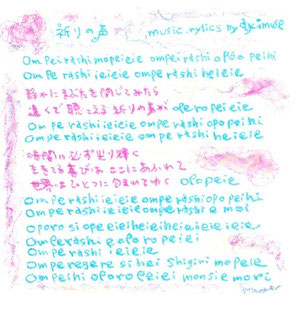 祈りの声 music.rylics ny
Ompei rashi mopeieie ompei rashi opoo peihi
Ompe rashi ieieie omperashi heieie
静かにまぶたを閉じてみたら
遠くで聴こえる 祈りの声が oleropeieie
Ompe rashi ieieie omperashi opo peihi
Ompe rashi ieieie omperashi heieie
時間は必ず光り輝く
生きてる喜びは ここにあふれて
世界はひとつに包まれゆく olopeie
Omperashi ieieie omperashiopo peihi
Omperashi ieieieie omperashi e mori
oporo si opeeieiheieiheieieieie ieie
Omperashi e oloropeiei
Omperashi ieieie
Omperegere si hei shigiri mopeie
Ompeihi oloroleiei monsie mori